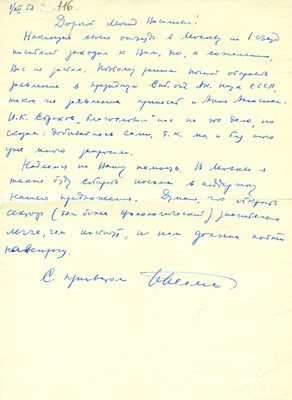 1/XII 58 г. 116.
Дорогой Леонид Васильевич!
Накануне моего отъезда в Москву на I съезд
писателей заходил к Вам, но, к сожалению,
Вас не застал. Поэтому решил почтой отправить
заявление в президиум Сиб. отд. Ак. наук СССР,
такое же заявление принесет и Анна
И.К. нас на это дело, но
сказал: добивайтесь сами, т.к. мы и без того
уже много запросили.
Надеюсь на Вашу помощь. В Москве я
также буду собирать письма в поддержку
нашего предложения. Думаю, что открыть
сектор (тем более филологический) значительно
легче, чем институт, и нам должны пойти
навстречу.
С приветом